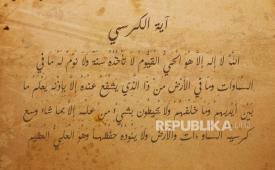 آية الكرسي
اللهُ لَا إِلَهَ إِلَّا هُوَ الْحَيُّ الْقَيُّومُ لَا تَأْخُذُهُ سِنَةٌ وَلَا نَوْمٌ لَهُ مَا فِي
السَّمَاوَاتِ وَمَا فِي الْأَرْضِ مَنْ ذَا الَّذِي يَشْفَعُ عِنْدَهُ إِلَّا بِإِذْنِهِ يَعْلَمُ مَا
بَيْنَ أَيْدِيهِمْ وَمَا خَلْفَهُمْ وَلَا يُحِيطُونَ بِشَيْءٍ مِنْ عِلْمِهِ إِلَّا بِمَا شَاءَ وَسِعَ
كُرْسِيُّهُ السَّمَاوَاتِ وَالْأَرْضَ وَلَا يَئُودُهُ حِفْظُهُمَا وَهُوَ الْعَلِيُّ الْعَظِيمُ
REPUBLIKA